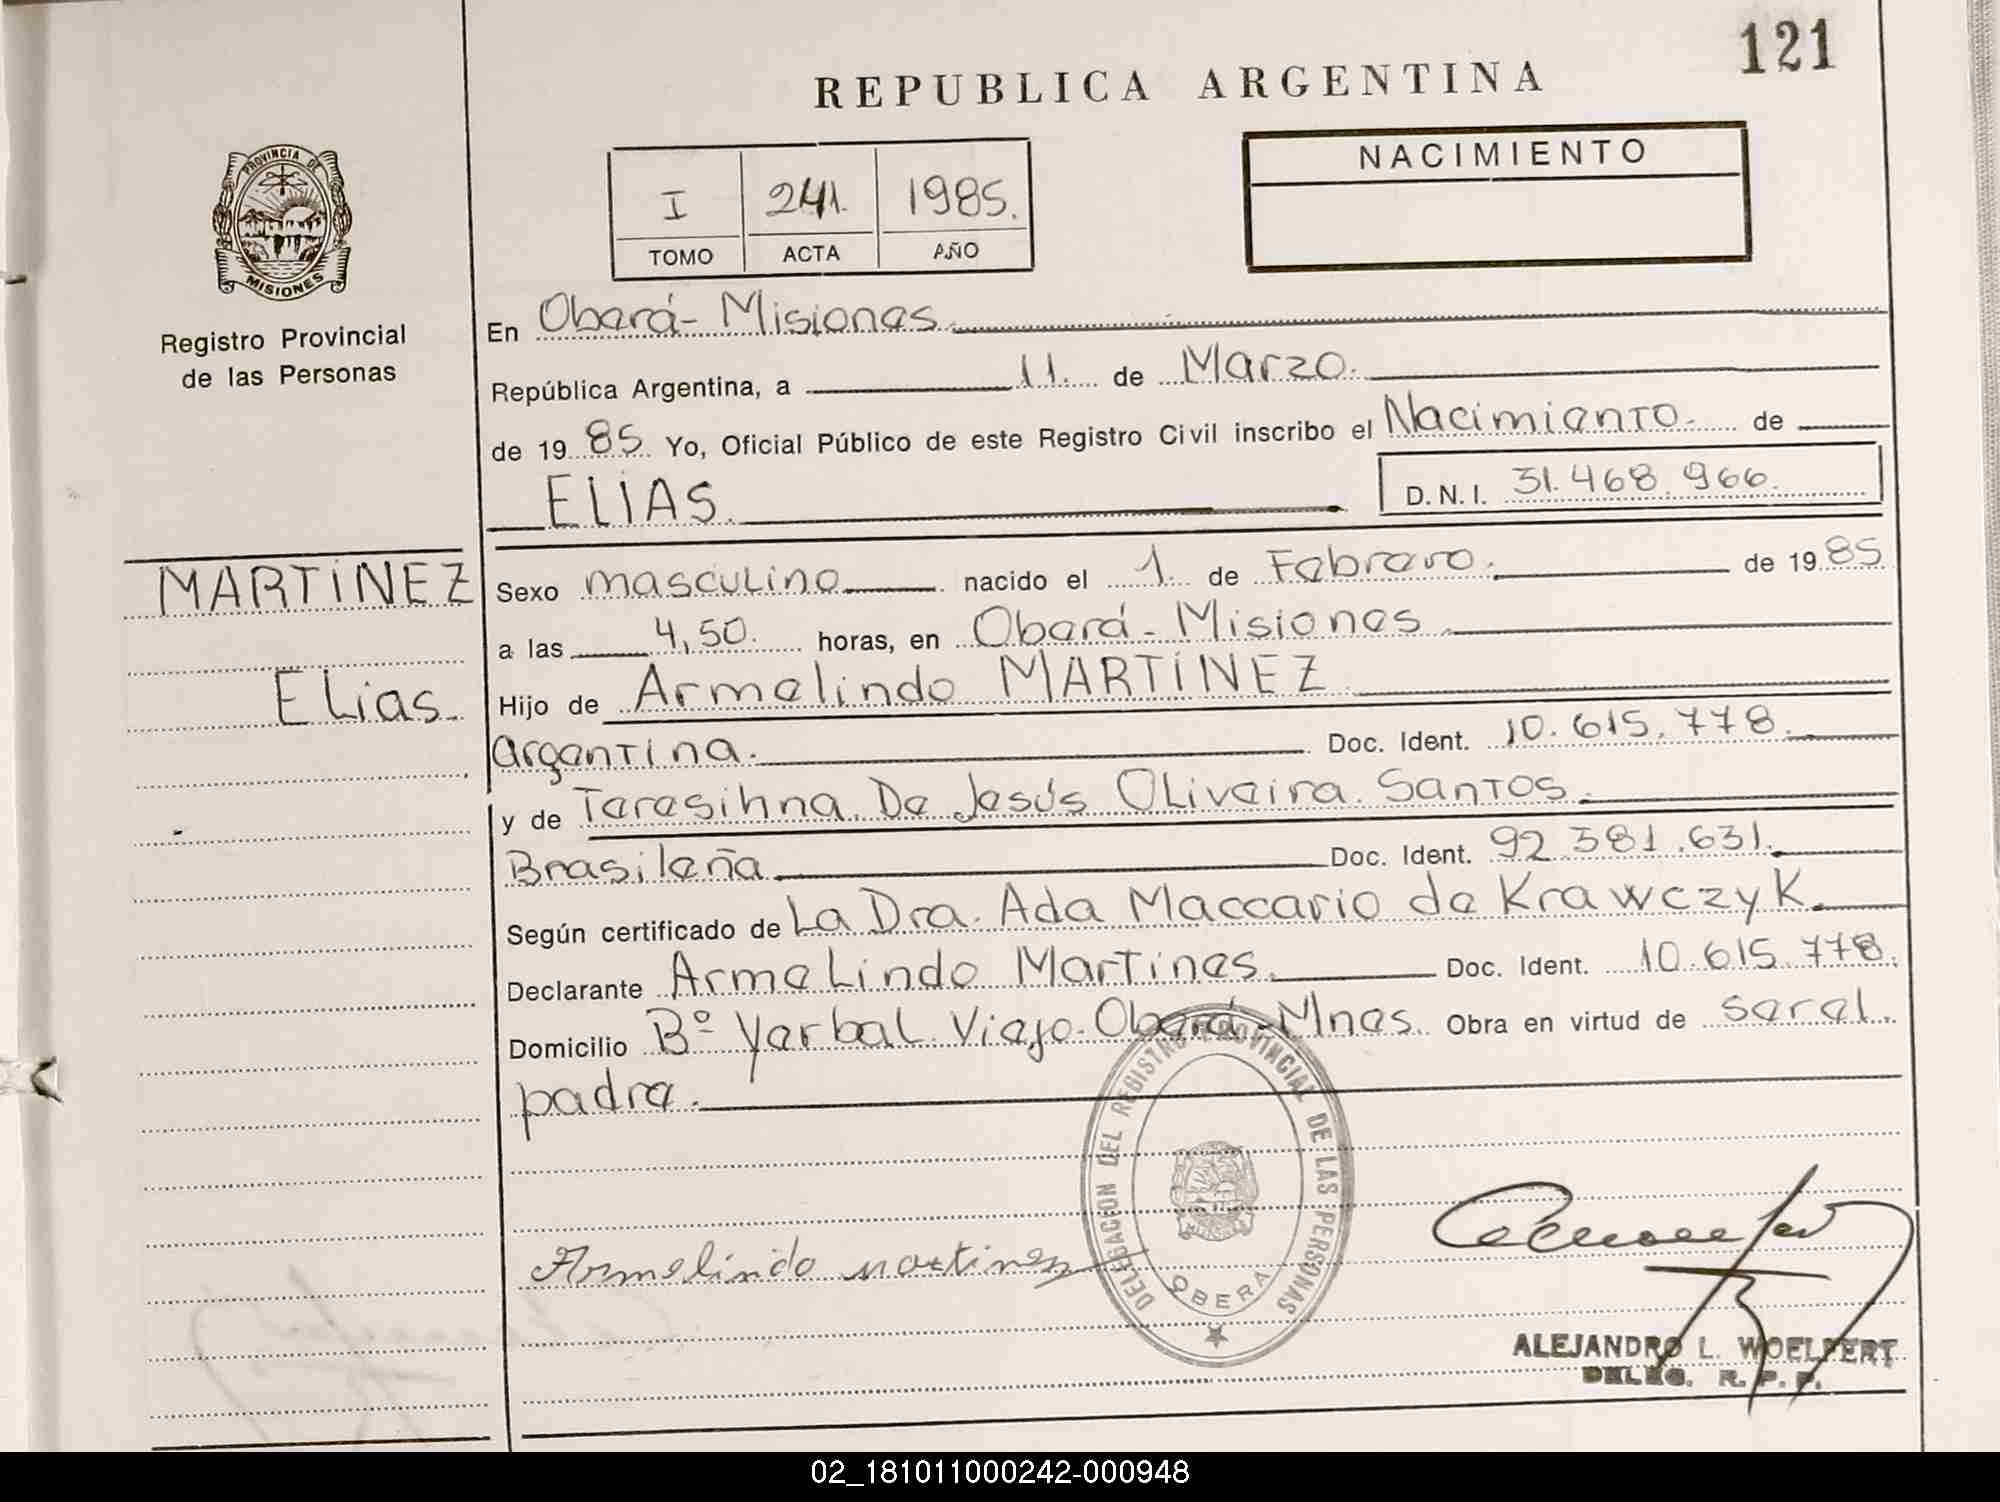 121
REPUBLICA ARGENTINA
PROVINCIA DE
MISIONES
Registro Provincial
de las Personas
I 241. 1985.
TOMO ACTA AÑO
NACIMIENTO
En Oberá - Misiones.
República Argentina, a 11. de Marzo.
de 19 85. Yo, Oficial Público de este Registro Civil inscribo el Nacimiento. de
ELIAS.
D. N. I. 31.468.966.
MARTÍNEZ
Elias.
Sexo masculino nacido el 1. de Febrero. de 19 85
a las 4,50. horas, en Oberá - Misiones.
Hijo de Armelindo MARTÍNEZ.
argentina. Doc. Ident. 10.615.778.
y de Teresihna De Jesús Oliveira Santos.
Brasileña Doc. Ident. 92.381.631.
Según certificado de La Dra. Ada Maccario de Krawczyk.
Declarante Armelindo Martines. Doc. Ident. 10.615.778.
Domicilio Bº Yerbal Viejo. Oberá - Mnes. Obra en virtud de ser el
padre.
Armelindo martinez
DELEGACION DEL REGISTRO PROVINCIAL DE LAS PERSONAS
OBERA
ALEJANDRO L. WOELFERT
DELEG. R. P. P.
02_181011000242-000948